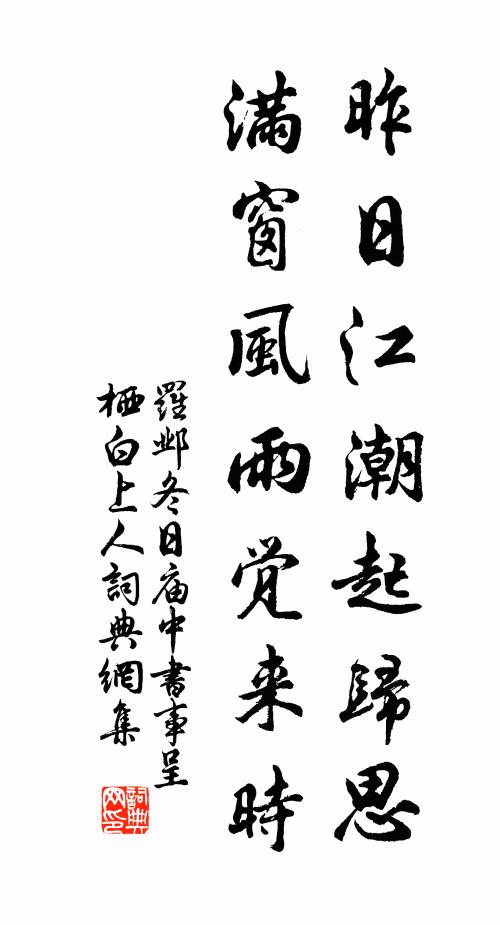 昨日江潮起歸思
滿窗風雨覚來時
羅邺冬日庙中書事呈
栖白上人詞典網集
詞典网印